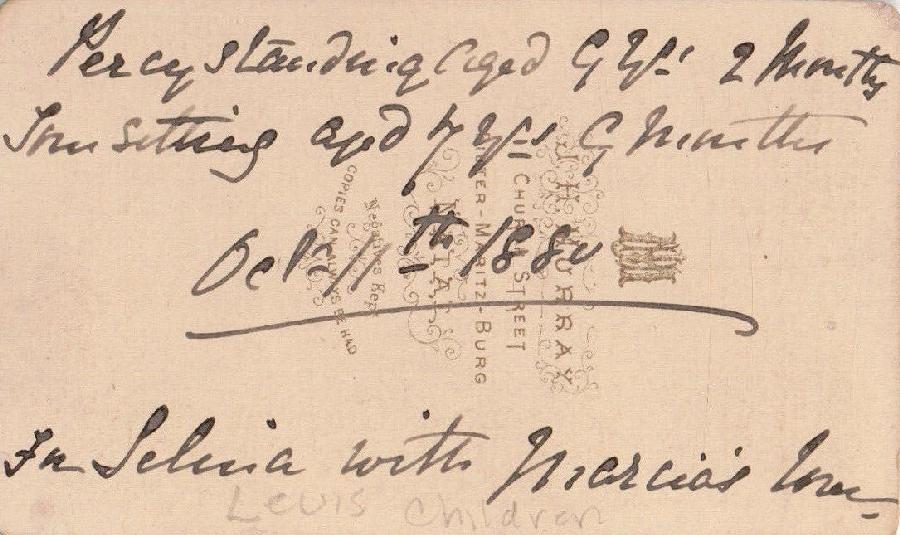 Percy standing aged 9 Yrs 2 Months
Tom sitting aged 7 yrs 9 Months
Octr 11th 1880
For Selina with Marcia's love
Lewis Children
J H MURRAY
CHURCH STREET
PIETER-MARITZ-BURG
NATAL
Negatives Kept
COPIES CAN ALWAYS BE HAD